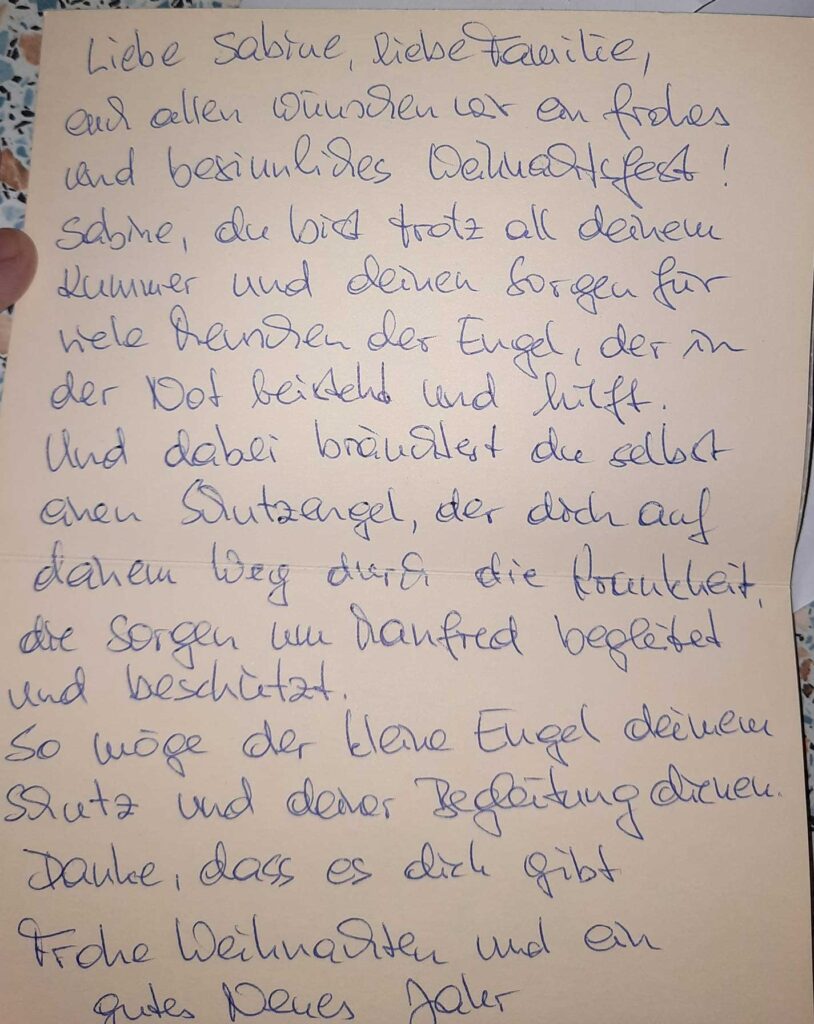 Liebe Sabine, liebe Familie,
euch allen wünschen wir ein frohes
und besinnliches Weihnachtsfest!
Sabine, du bist trotz all deinem
Kummer und deinen Sorgen für
viele Menschen der Engel, der in
der Not beisteht und hilft.
Und dabei bräuchtest du selbst
einen Schutzengel, der dich auf
deinem Weg durch die Krankheit,
die Sorgen um Manfred begleitet
und beschützt.
So möge der kleine Engel deinem
Schutz und deiner Begleitung dienen.
Danke, dass es dich gibt
Frohe Weihnachten und ein
gutes Neues Jahr